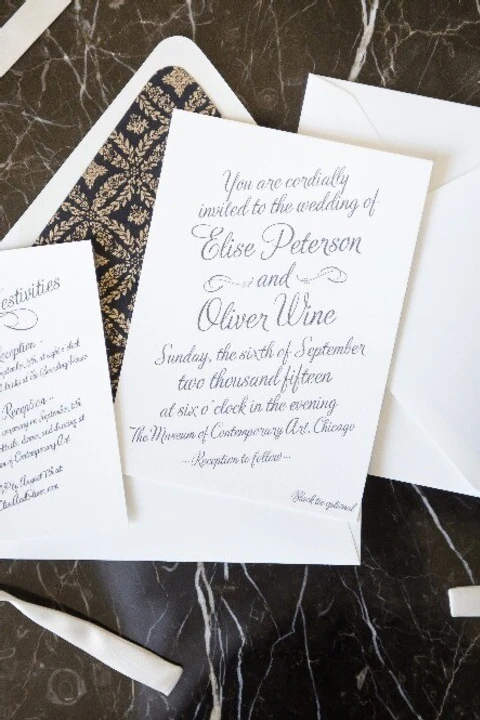 You are cordially
invited to the wedding of
Elise Peterson
and
Oliver Wine
Sunday, the sixth of September
two thousand fifteen
at six o'clock in the evening
The Museum of Contemporary Art, Chicago
~Reception to follow~
Black tie optional
estivities
Reception
Reception
of Contemporary Art
by August 7th at